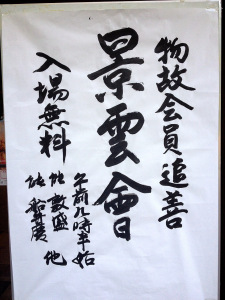 物故会員追善
景雲會
午前九時半始
入場無料
能 敦盛 他
能 船弁慶